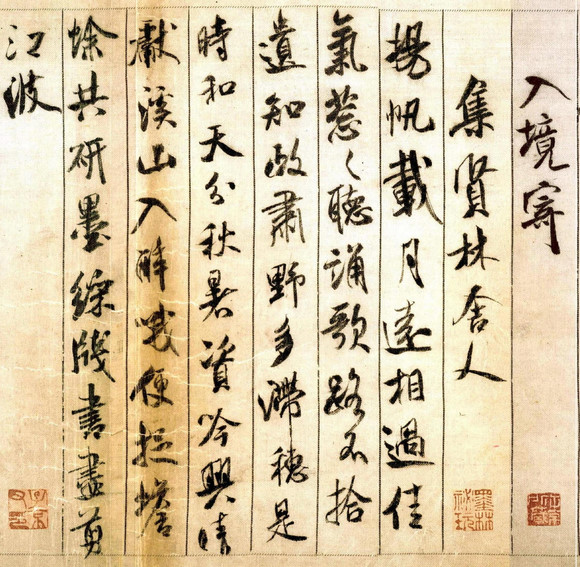 入境寄
集賢林舍人
揚帆載月遠相過佳
氣葱々聽誦歌路不拾
遺知政肅野多滯穗是
時和天分秋暑資吟興晴
獻溪山入醉哦便捉蟾
蜍共研墨綵牋書盡剪
江波